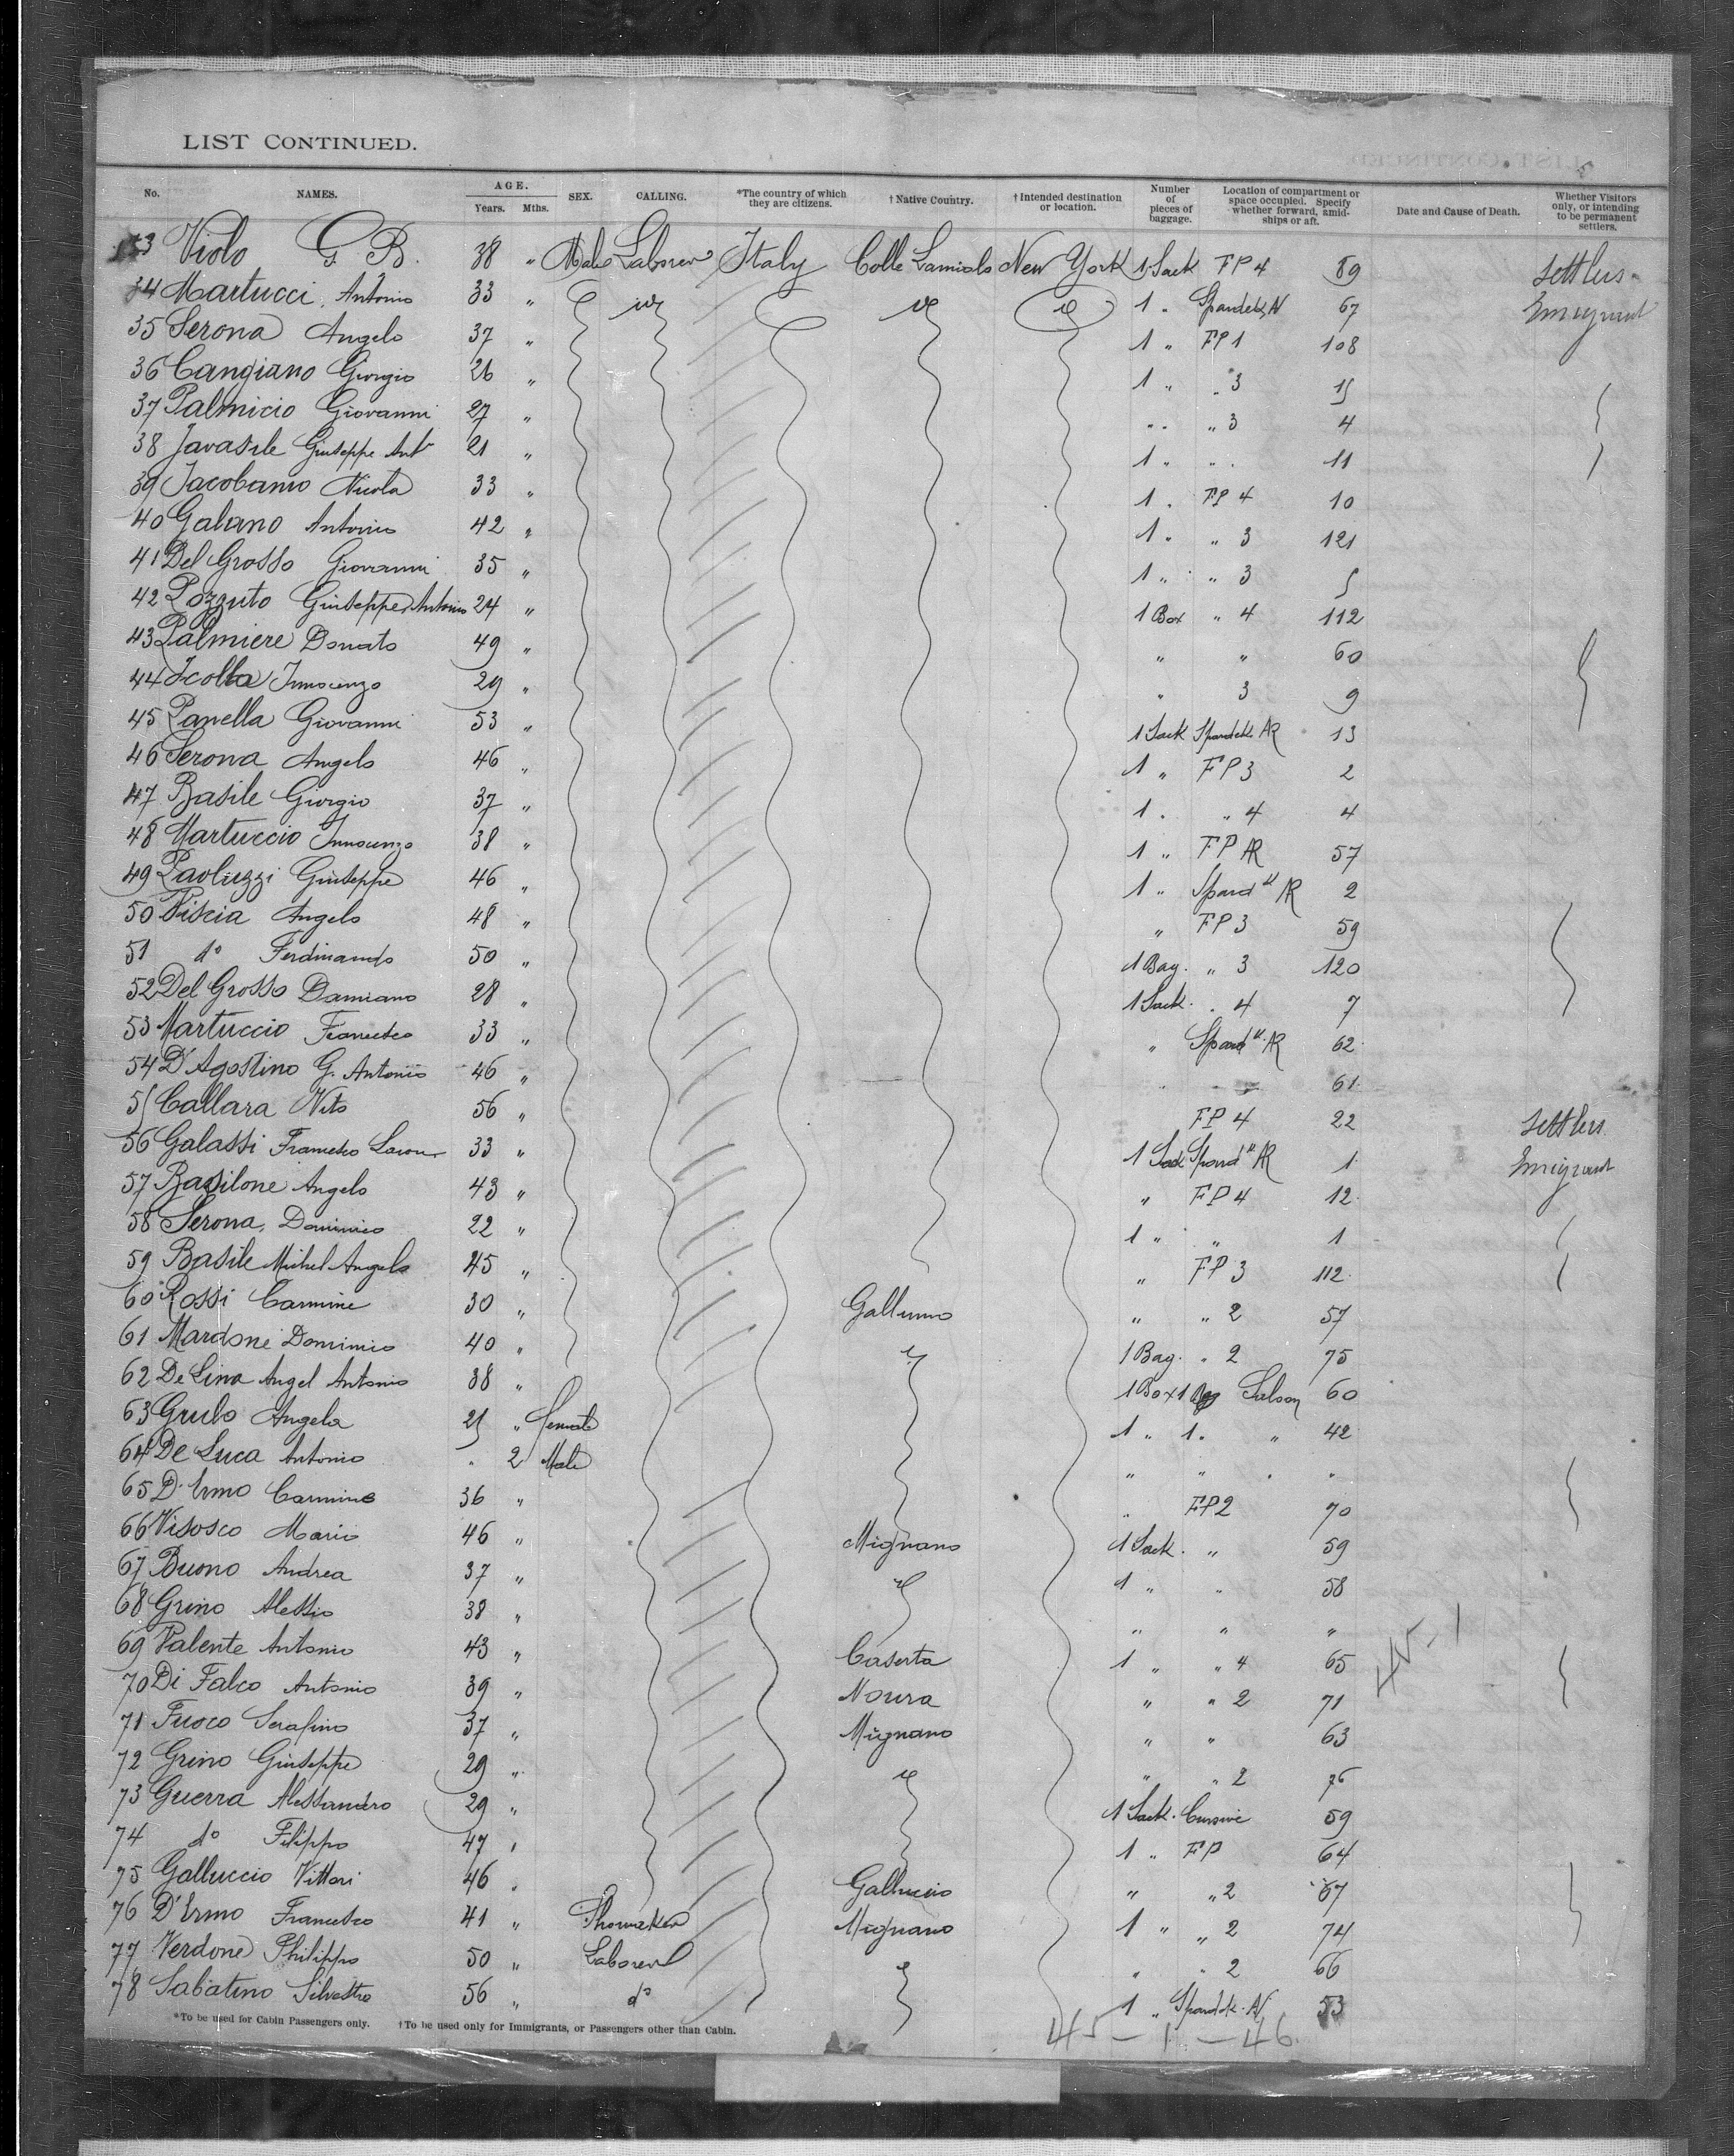 LIST CONTINUED.
No. NAMES. AGE. Years. Mths. SEX. CALLING. *The country of which they are citizens. †Native Country. †Intended destination or location. Number of pieces of baggage. Location of compartment or space occupied. Specify whether forward, amidships or aft. Date and Cause of Death. Whether Visitors only, or intending to be permanent settlers.
Violo G. B. 38 " Male Laborer Italy Colle New York 1 Sack FP 4 89 Settlers
34 Martucci Antonio 33 " 1 " 67 Emigrant
35 Serona Angelo 37 " 1 " FP 1 108
36 Cangiano Giorgio 26 " 1 " " 3 15
37 Palmicio Giovanni 27 " " " " 3 4
38 Javasile Giuseppe Ant 21 " 1 " " " 11
39 Jacobanno Nicola 33 " 1 " FP 4 10
40 Galano Antonio 42 " 1 " " 3 121
41 Del Grosso Giovanni 35 " 1 " " 3 5
42 Pozzuto Giuseppe Antonio 24 " 1 Box " 4 112
43 Palmiere Donato 49 " " " 60
44 Innocenzo 29 " " 3 9
45 Panella Giovanni 53 " 1 Sack Spardek AR 13
46 Serona Angelo 46 " 1 " FP 3 2
47 Basile Giorgio 37 " 1 " " 4 4
48 Martuccio Innocenzo 38 " 1 " FP AR 57
49 Paoluzzi Giuseppe 46 " 1 " Spard k AR 2
50 Piscia Angelo 48 " " FP 3 59
51 do Ferdinando 50 " 1 Bag. " 3 120
52 Del Grosso Damiano 28 " 1 Sack. " 4 7
53 Martuccio Francesco 33 " " Spard k AR 62
54 D'Agostino G. Antonio 46 " " " 61
55 Callara Vito 56 " FP 4 22 Settlers
56 Galassi Francesco 33 " 1 Sack Spard k AR 1 Emigrant
57 Basilone Angelo 43 " " FP 4 12
58 Serona Dominico 22 " 1 " " 1
59 Basile Michel Angelo 45 " " FP 3 112
60 Rossi Carmine 30 " " " 2 57
61 Mardone Dominico 40 " 1 Bag. " 2 75
62 De Lina Angel Antonio 38 " 1 Box 1 Bag Saloon 60
63 Grulo Angela 25 " Female 1 " 1 " " 42
64 De Luca Antonio " 2 Male " " " "
65 D'Ermo Carmine 36 " " FP 2 70
66 Visosco Mario 46 " Mignano 1 Sack. " 59
67 Buono Andrea 37 " 1 " " 58
68 Grino Alessio 38 " " " "
69 Valente Antonio 43 " Caserta 1 " " 4 65
70 Di Falco Antonio 39 " Noura " " 2 71
71 Fuoco Serafino 37 " Mignano " " 63
72 Grino Giuseppe 29 " " " 2 76
73 Guerra Alessandro 29 " 1 Sack. 59
74 do Filippo 47 " 1 " FP 64
75 Galluccio Vittori 46 " Galluccio " " 2 67
76 D'Ermo Francesco 41 " Shomaker Mignano 1 " " 2 74
77 Verdone Philippo 50 " Laborer " " 2 66
78 Sabatino Silvestro 56 " do 1 " Spardk. 53
*To be used for Cabin Passengers only. †To be used only for Immigrants, or Passengers other than Cabin.
45 - 1 - 46.